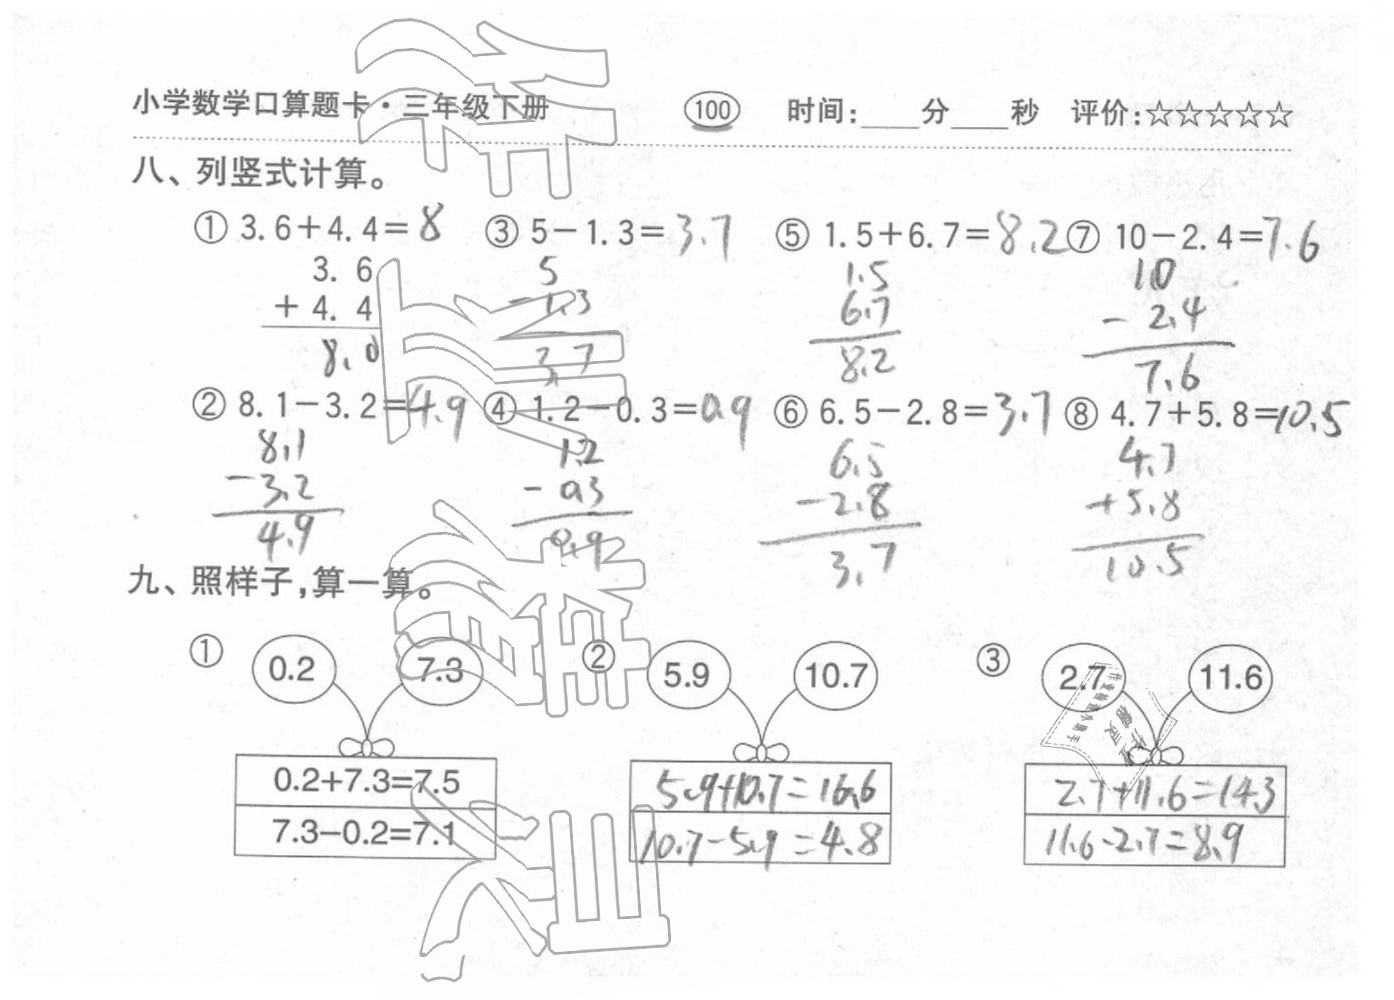 小学数学口算题卡·三年级下册 100 时间:____分____秒 评价:☆☆☆☆☆
八、列竖式计算。
① 3.6+4.4=8 ③ 5-1.3=3.7 ⑤ 1.5+6.7=8.2 ⑦ 10-2.4=7.6
3.6 5 1.5 10
+4.4 -1.3 6.7 -2.4
8.0 3.7 8.2 7.6
② 8.1-3.2=4.9 ④ 1.2-0.3=0.9 ⑥ 6.5-2.8=3.7 ⑧ 4.7+5.8=10.5
8.1 1.2 6.5 4.7
-3.2 -0.3 -2.8 +5.8
4.9 0.9 3.7 10.5
九、照样子,算一算。
① 0.2 7.3 ② 5.9 10.7 ③ 2.7 11.6
0.2+7.3=7.5 5.9+10.7=16.6 2.7+11.6=14.3
7.3-0.2=7.1 10.7-5.9=4.8 11.6-2.7=8.9